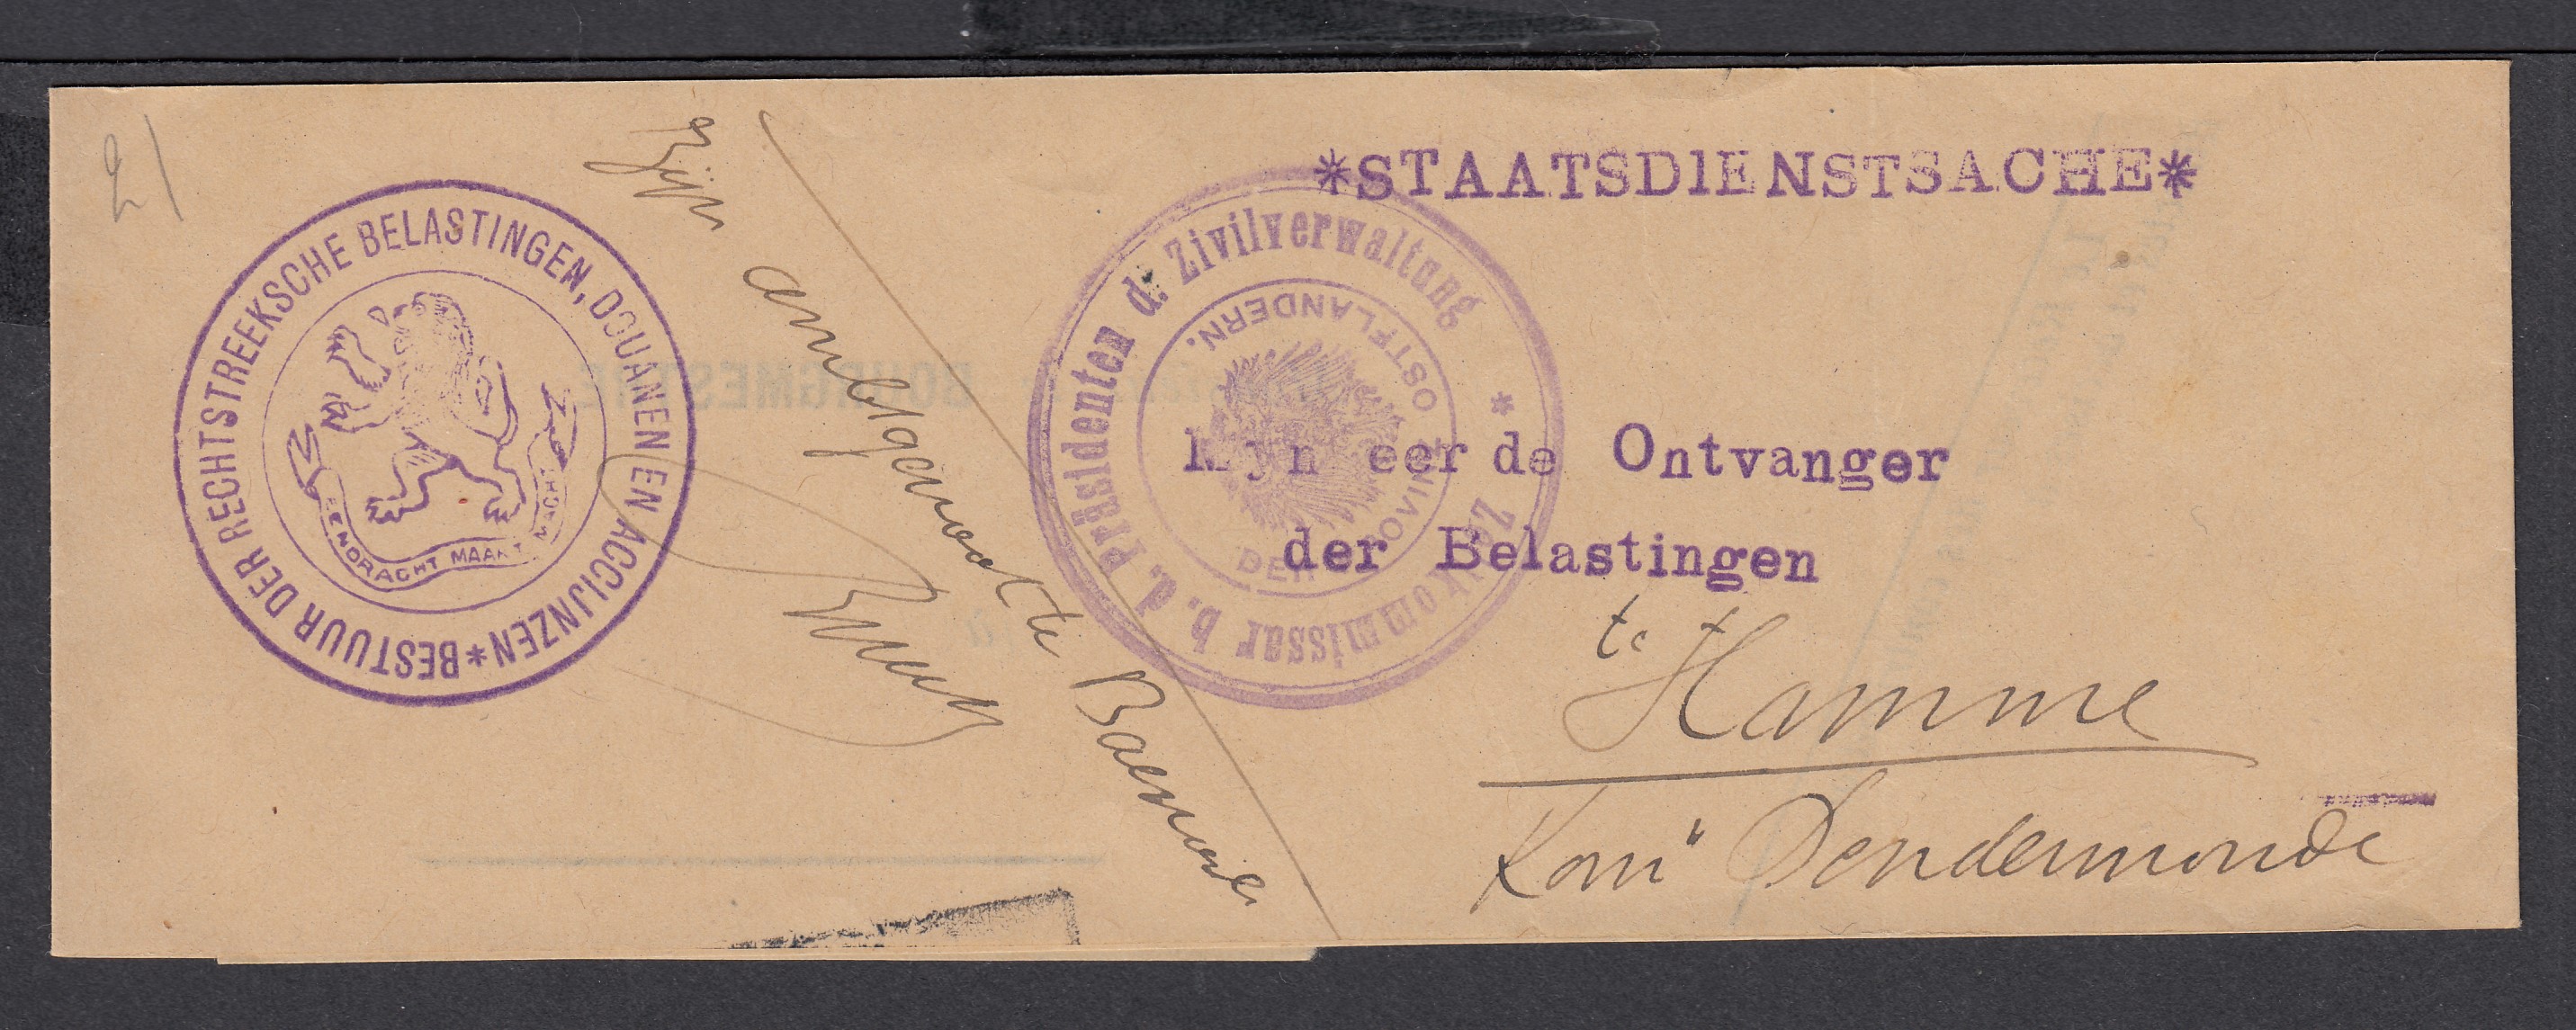 21
*STAATSDIENSTSACHE*
*BESTUUR DER RECHTSTREEKSCHE BELASTINGEN, DOUANEN EN ACCIJNZEN
EENDRACHT MAAKT MACHT
Zijn ambtgenoot te
Zivilkommissar b. d. Präsidenten d. Zivilverwaltung *
DER PROVINZ OSTFLANDERN.
Mynheer de Ontvanger
der Belastingen
te Hamme
Kom" Dendermonde
BOURGMESTRE